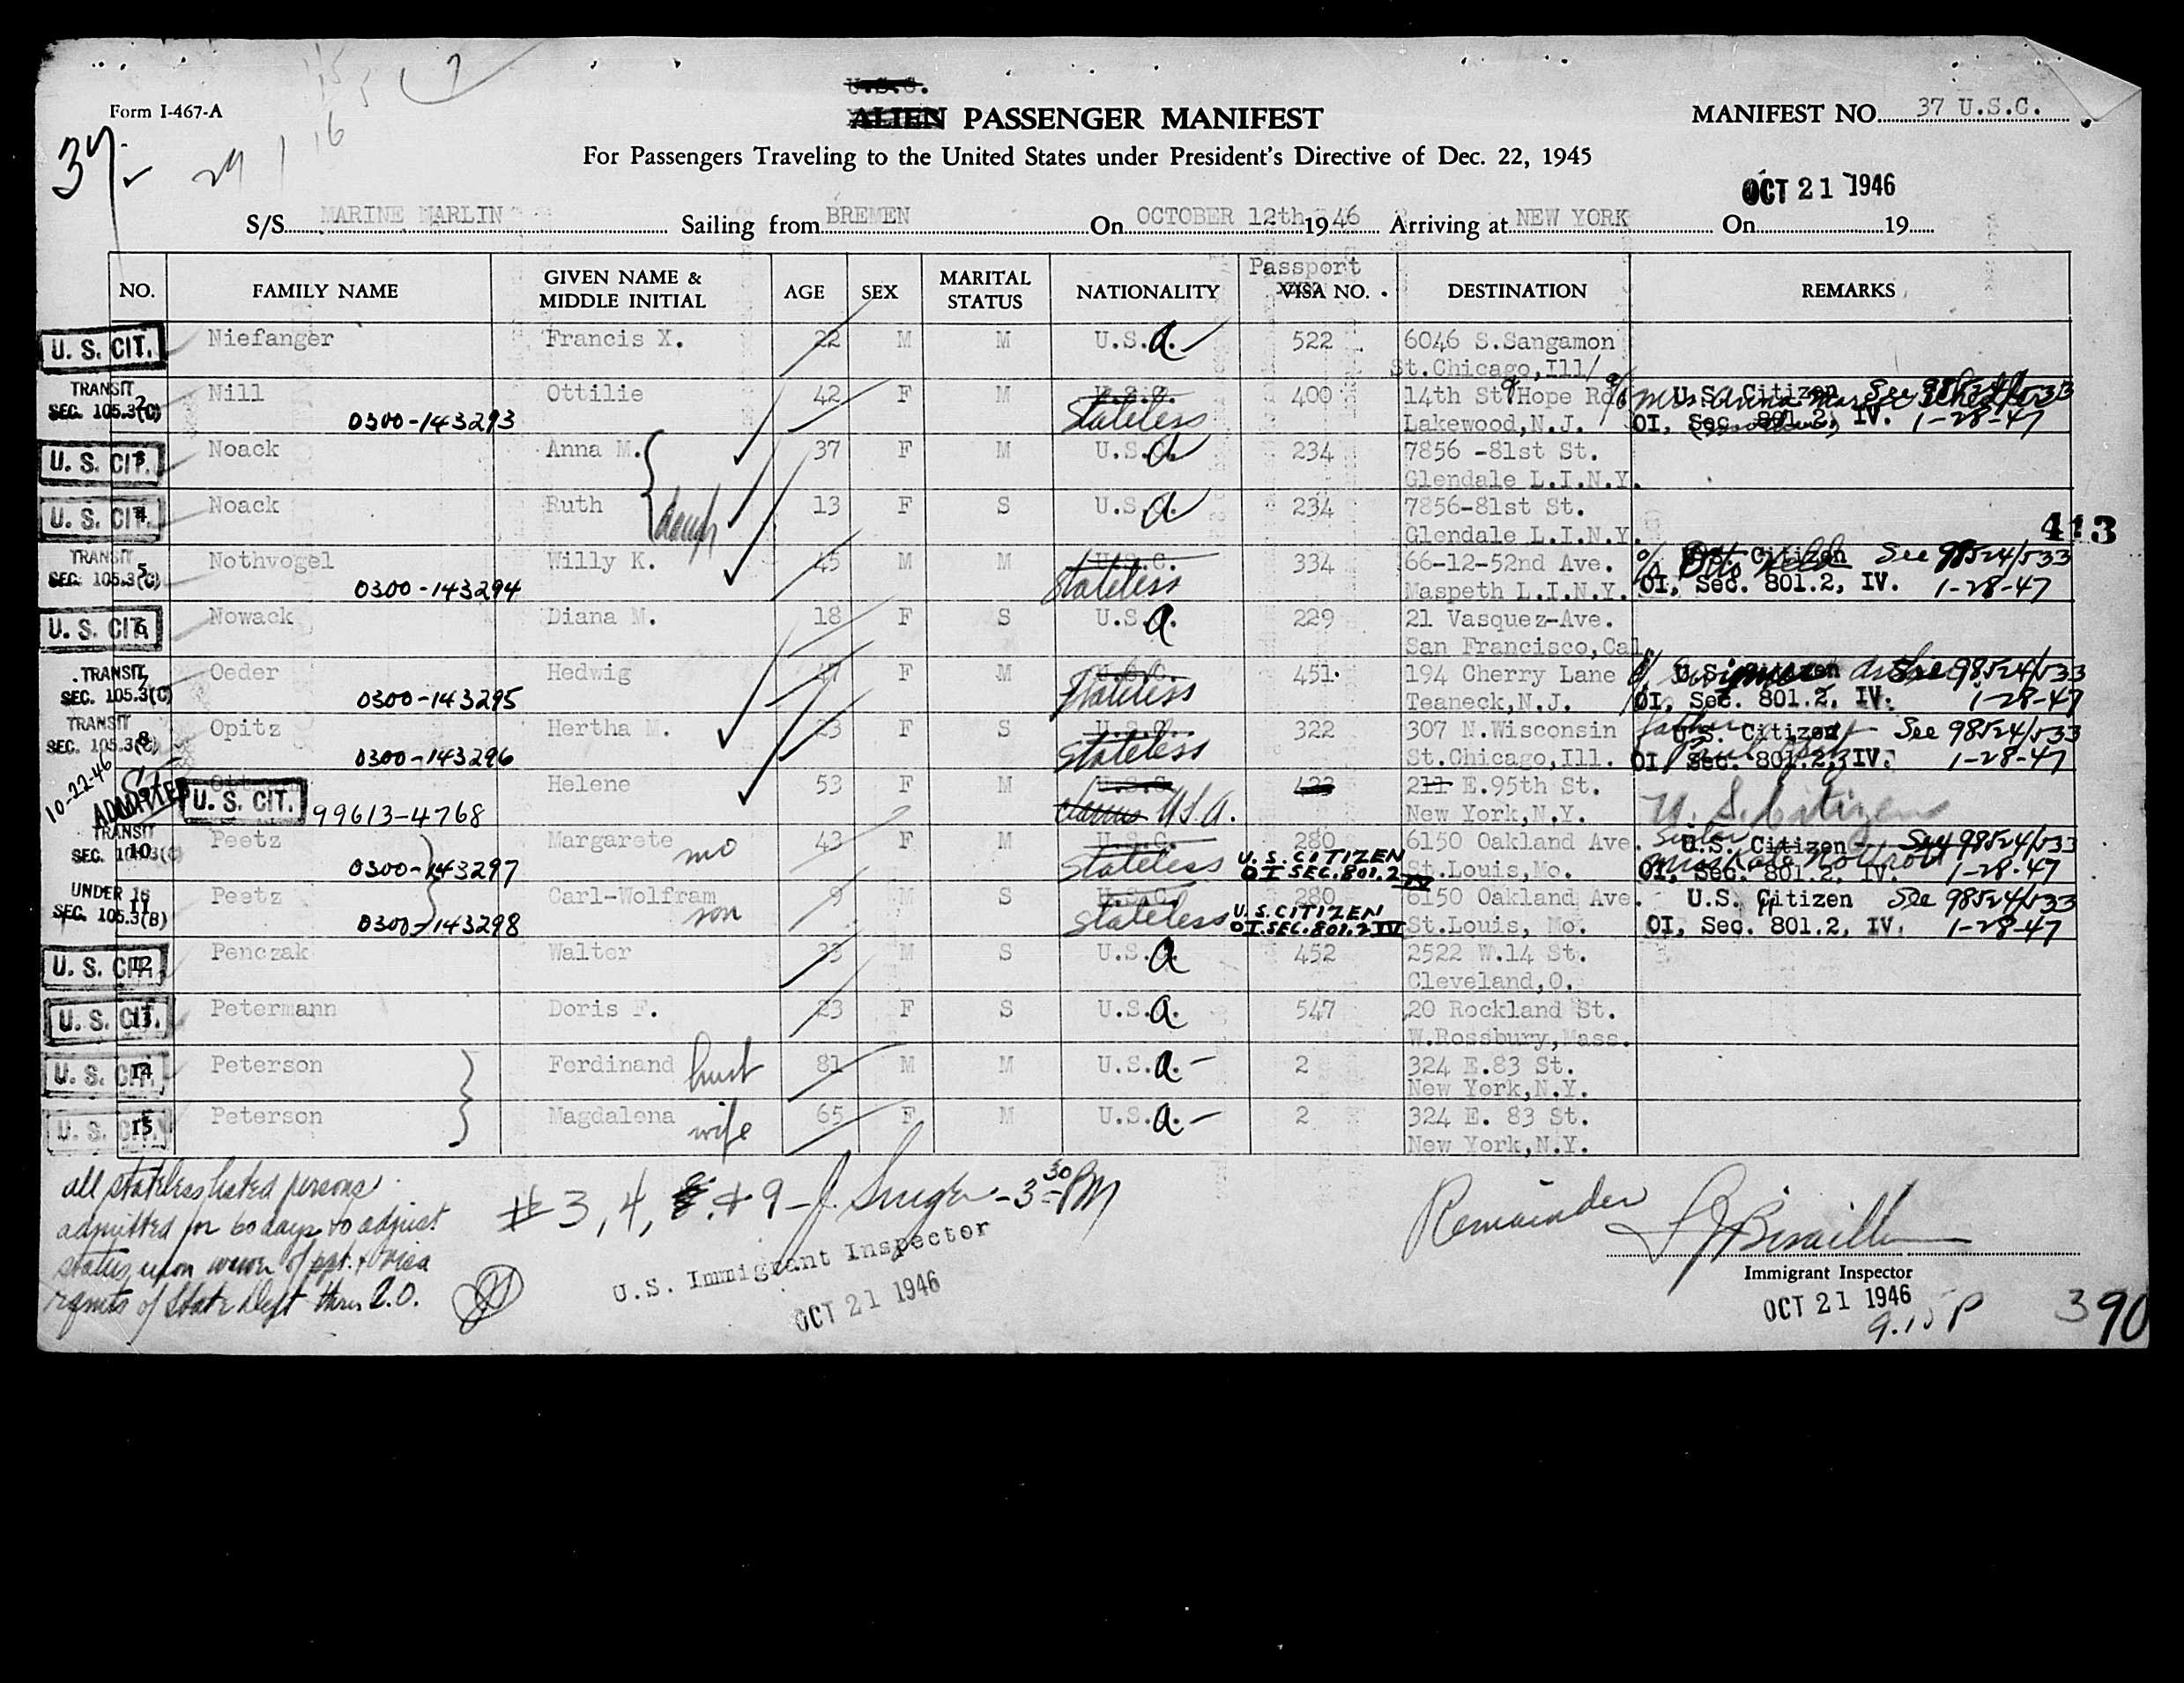 U.S.C.
Form I-467-A
ALIEN PASSENGER MANIFEST
MANIFEST NO. 37 U.S.C.
For Passengers Traveling to the United States under President's Directive of Dec. 22, 1945
OCT 21 1946
S/S MARINE MARLIN Sailing from BREMEN On OCTOBER 12th 1946 Arriving at NEW YORK On 19
NO. FAMILY NAME GIVEN NAME & MIDDLE INITIAL AGE SEX MARITAL STATUS NATIONALITY Passport VISA NO. DESTINATION REMARKS
U. S. CIT. Niefanger Francis X. 22 M M U.S.A. 522 6046 S.Sangamon
St.Chicago,Ill/
TRANSIT 2 Nill Ottilie 42 F M U.S.C. 400 14th St Hope Rd U.S. Citizen See 98524/533
SEC. 105.3(C) 0300-143293 Stateless Lakewood,N.J. OI, Sec. 801.2, IV. 1-28-47
U. S. CIT. 3 Noack Anna M. 37 F M U.S.A 234 7856 -81st St.
Glendale L.I.N.Y.
U. S. CIT. 4 Noack Ruth daugh 13 F S U.S.A 234 7856-81st St.
Glendale L.I.N.Y.
413
TRANSIT 5 Nothvogel Willy K. 45 M M U.S.C. 334 66-12-52nd Ave. c/o Otto U.S. Citizen See 98524/533
SEC. 105.3(C) 0300-143294 Stateless Maspeth L.I.N.Y. OI, Sec. 801.2, IV. 1-28-47
U. S. CIT. 6 Nowack Diana M. 18 F S U.S.A. 229 21 Vasquez-Ave.
San Francisco,Cal.
TRANSIT 7 Oeder Hedwig 47 F M U.S.C. 451 194 Cherry Lane U.S. Citizen See 98524/533
SEC. 105.3(C) 0300-143295 Stateless Teaneck,N.J. OI, Sec. 801.2, IV. 1-28-47
TRANSIT 8 Opitz Hertha M. 23 F S U.S.C. 322 307 N.Wisconsin father U.S. Citizen See 98524/533
SEC. 105.3(C) 0300-143296 Stateless St.Chicago,Ill. OI, Sec. 801.2, IV. 1-28-47
10-22-46 ADMITTED Helene 53 F M U.S.C 423 211 E.95th St.
U. S. CIT. 99613-4768 claims U.S.A. New York,N.Y. U. S. Citizen
TRANSIT 10 Peetz Margarete mo 43 F M U.S.C. 280 6150 Oakland Ave. Sister U.S. Citizen See 98524/533
SEC. 105.3(C) 0300-143297 Stateless U.S. CITIZEN OI SEC. 801.2 IV St.Louis,Mo. OI, Sec. 801.2, IV. 1-28-47
UNDER 16 11 Peetz Carl-Wolfram son 9 M S U.S.C. 280 6150 Oakland Ave. U.S. Citizen See 98524/533
SEC. 105.3(B) 0300-143298 Stateless U.S.CITIZEN OI.SEC.801.2 IV St.Louis, Mo. OI, Sec. 801.2, IV. 1-28-47
U. S. CIT. 12 Penczak Walter 33 M S U.S.A 452 2522 W.14 St.
Cleveland,O.
U. S. CIT. 13 Petermann Doris F. 23 F S U.S.A. 547 20 Rockland St.
W.Rossbury,Mass.
U. S. CIT. 14 Peterson Ferdinand husb 81 M M U.S.A.- 2 324 E.83 St.
New York,N.Y.
U. S. CIT. 15 Peterson Magdalena wife 65 F M U.S.A.- 2 324 E. 83 St.
New York,N.Y.
all stateless listed persons
admitted for 60 days to adjust
status upon waiver of ppt. & visa
rqmts of State Dept thru C.O.
#3, 4, 8. + 9 - J. Singer - 3 30 PM
U.S. Immigrant Inspector
OCT 21 1946
Remainder
Immigrant Inspector
OCT 21 1946
9.15 P
390